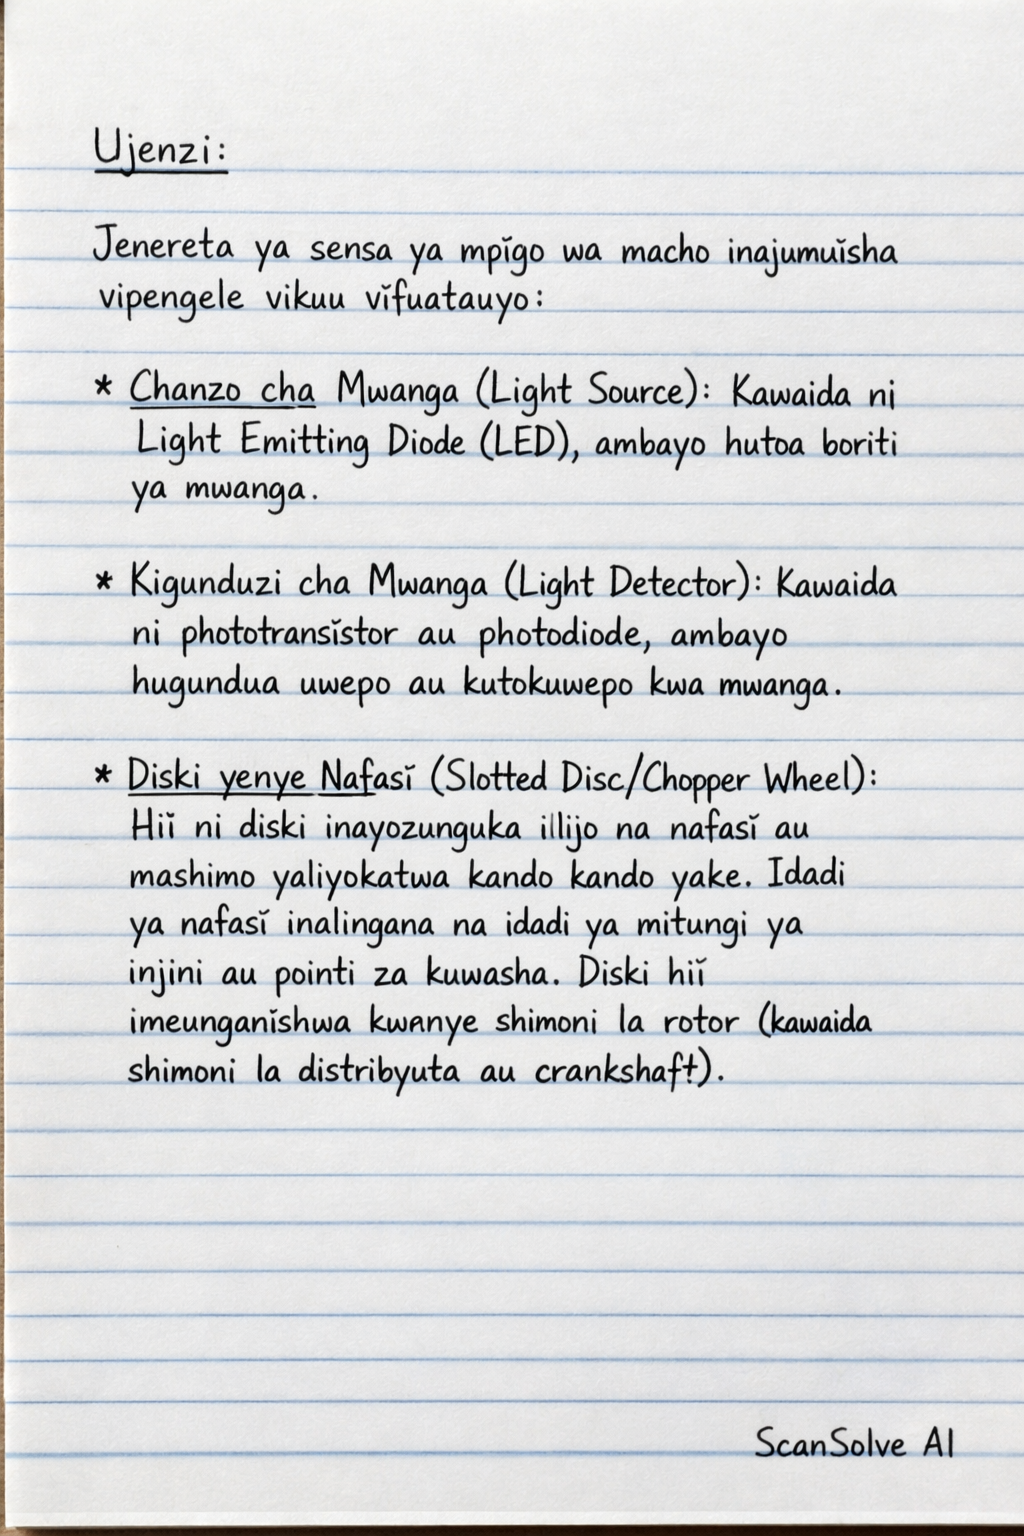 Ujenzi:
Jenereta ya sensa ya mpĭgo wa macho inajumuĭsha
vipengele vikuu vĭfuatauyo:
* Chanzo cha Mwanga (Light Source): Kawaida ni
Light Emitting Diode (LED), ambayo hutoa boriti
ya mwanga.
* Kigunduzi cha Mwanga (Light Detector): Kawaida
ni phototransĭstor au photodiode, ambayo
hugundua uwepo au kutokuwepo kwa mwanga.
* Diski yenye Nafasĭ (Slotted Disc/Chopper Wheel):
Hiĭ ni diski inayozunguka illijo na nafasĭ au
mashimo yaliyokatwa kando kando yake. Idadi
ya nafasĭ inalingana na idadi ya mitungi ya
injini au pointi za kuwasha. Diski hiĭ
imeunganĭshwa kwanye shimoni la rotor (kawaida
shimoni la distribyuta au crankshaft).
ScanSolve AI